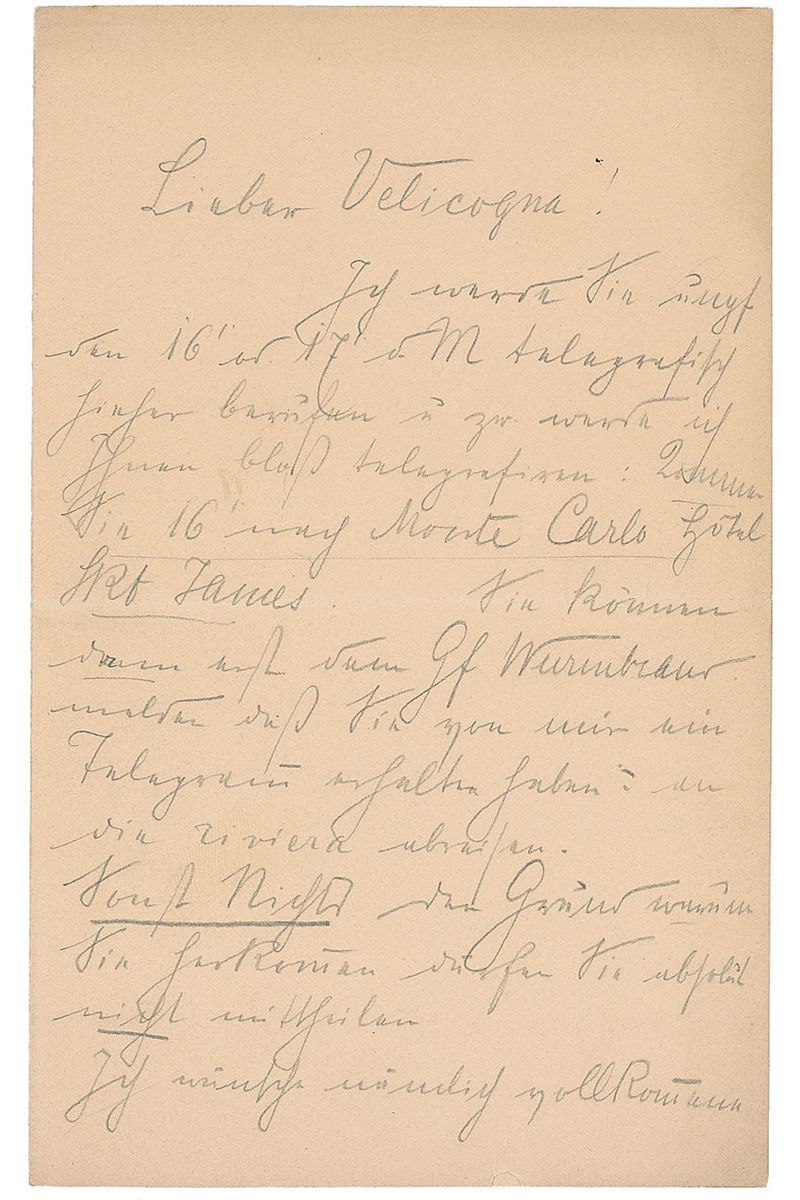 Lieber Velicogna!
Ich werde Sie ungf
den 16' od. 17' d. M telegrafisch
hieher berufen u zw. werde ich
Ihnen bloß telegrafiren: Kommen
Sie 16' nach Monte Carlo Hôtel
Skt James. Sie können
dann erst dem Gf Wurmbrand
melden daß Sie von mir ein
Telegram̅ erhalten haben u an
die riviera abreisen.
Sonst Nichts den Grund warum
Sie herkom̅en dürfen Sie absolut
nicht mittheilen
Ich wünsche nämlich vollkom̅ene